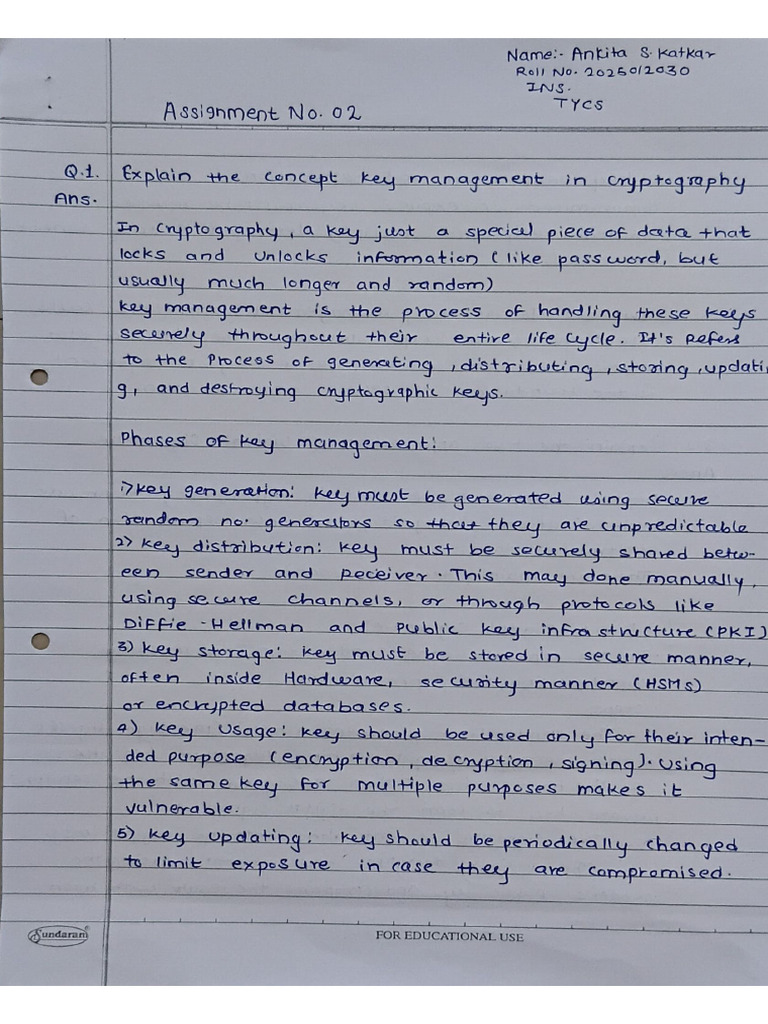 Name:- Ankita S. Katkar
Roll No. 2025012030
INS.
TYCS
Assignment No. 02
Q.1. Explain the concept key management in cryptography
Ans.
In cryptography, a key just a special piece of data that
locks and unlocks information (like password, but
usually much longer and random)
key management is the process of handling these keys
securely throughout their entire life cycle. It's refers
to the process of generating, distributing, storing, updatin
g, and destroying cryptographic keys.
Phases of key management:
1) key generation: key must be generated using secure
random no. generators so that they are unpredictable
2) key distribution: key must be securely shared betw-
een sender and receiver. This may done manually,
using secure channels, or through protocols like
Diffie-Hellman and Public key infrastructure (PKI)
3) key storage: key must be stored in secure manner,
often inside Hardware, security manner (HSMs)
or encrypted databases.
4) key usage: key should be used only for their inten-
ded purpose (encryption, decryption, signing). Using
the same key for multiple purposes makes it
vulnerable.
5) key updating: key should be periodically changed
to limit exposure in case they are compromised.
Sundaram
FOR EDUCATIONAL USE